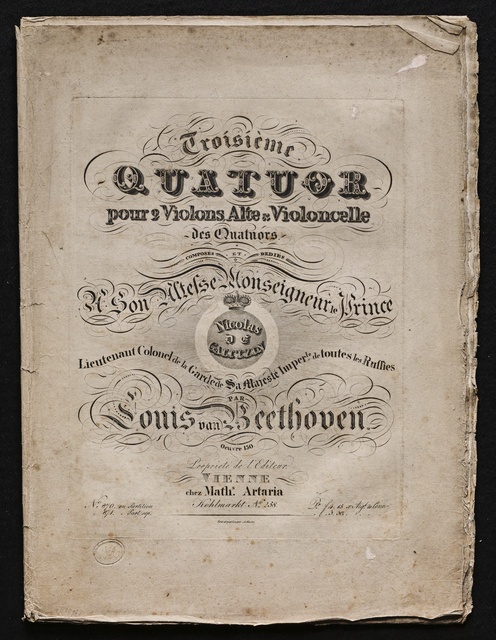 Troisième
QUATUOR
pour 2 Violons, Alte & Violoncelle
des Quatuors
COMPOSÉS ET DÉDIÉS
A Son Altesse Monseigneur le Prince
Nicolas
de
GALITZIN
Lieutenant Colonel de la Garde de Sa Majesté Imper.le de toutes les Russies
PAR
Louis van Beethoven
Oeuvre 130
Propriété de l'Editeur
VIENNE
chez Math.s Artaria
Kohlmarkt No. 258
No. 870. en Partition
871.